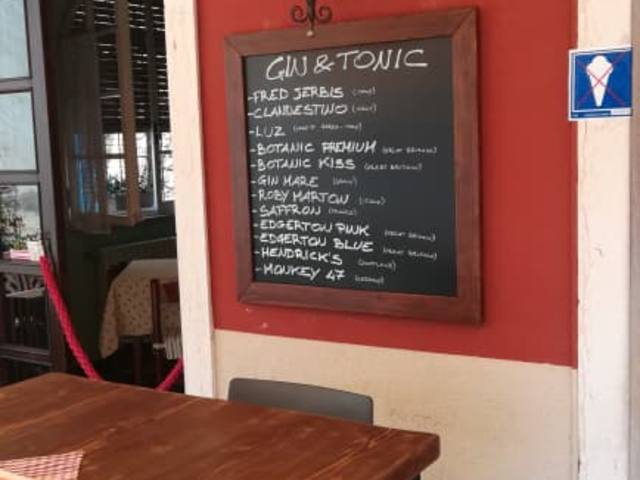 GIN & TONIC
-FRED JERBIS (ITALY)
-CLANDESTINO (ITALY)
-LUZ
-BOTANIC PREMIUM (GREAT BRITAIN)
-BOTANIC KISS (GREAT BRITAIN)
-GIN MARE (SPAIN)
-ROBY MARTON (ITALY)
-SAFFRON (FRANCE)
-EDGERTON PINK (GREAT BRITAIN)
-EDGERTON BLUE (GREAT BRITAIN)
-HENDRICK'S (SCOTLAND)
-MONKEY 47 (GERMANY)